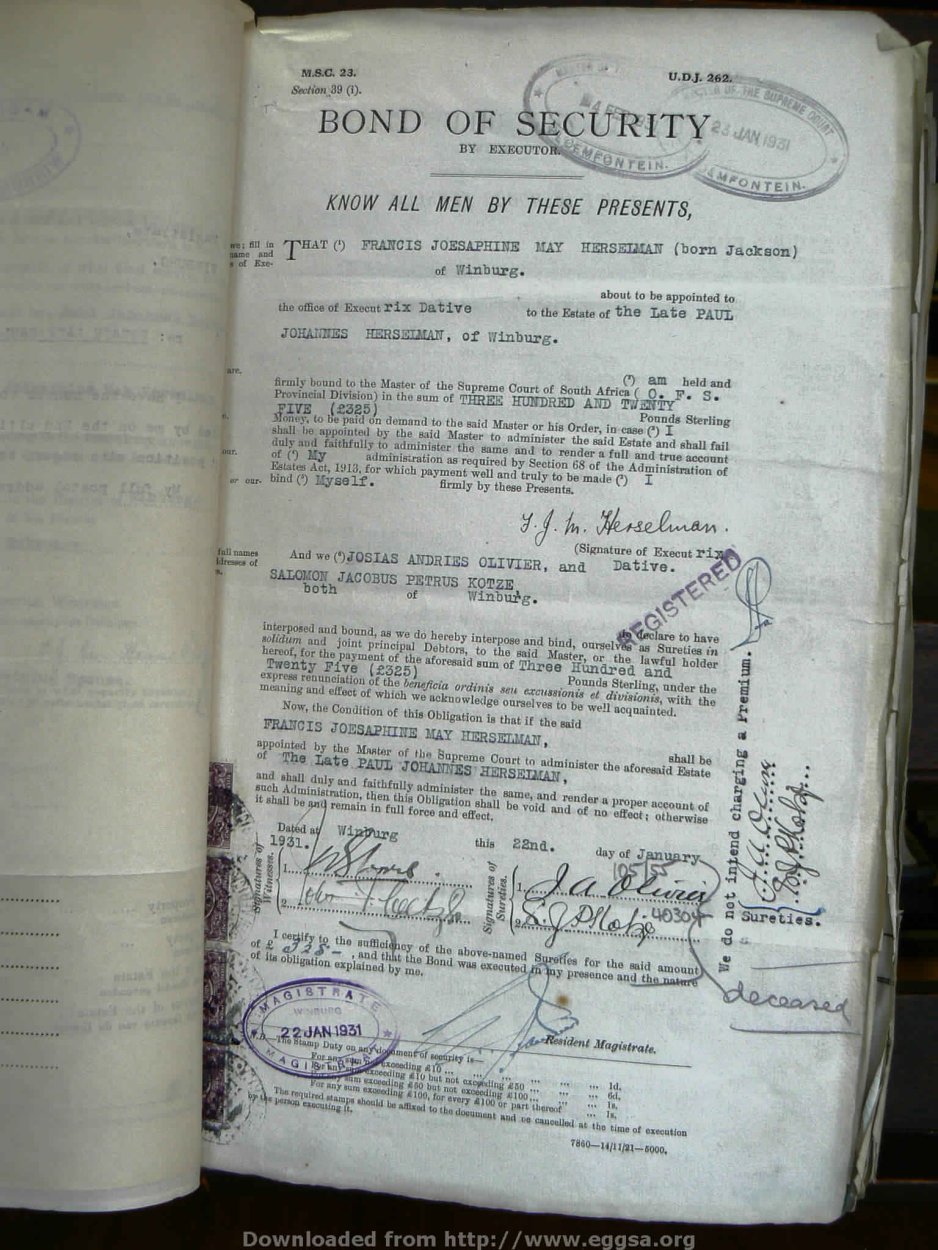 M.S.C. 23.
U.D.J. 262.
Section 39 (1).
BOND OF SECURITY
BY EXECUTOR.
23 JAN 1931
KNOW ALL MEN BY THESE PRESENTS,
THAT (¹) FRANCIS JOESAPHINE MAY HERSELMAN (born Jackson)
of Winburg.
about to be appointed to
the office of Execut rix Dative to the Estate of the Late PAUL
JOHANNES HERSELMAN, of Winburg.
(²) am held and
firmly bound to the Master of the Supreme Court of South Africa ( O. F. S.
Provincial Division) in the sum of THREE HUNDRED AND TWENTY
FIVE (£325) Pounds Sterling
Money, to be paid on demand to the said Master or his Order, in case (³) I
shall be appointed by the said Master to administer the said Estate and shall fail
duly and faithfully to administer the same and to render a full and true account
of (⁴) My administration as required by Section 68 of the Administration of
Estates Act, 1913, for which payment well and truly to be made (³) I
bind (⁵) Myself. firmly by these Presents.
F. J. M. Herselman.
(Signature of Execut rix
Dative.
And we (⁶) JOSIAS ANDRIES OLIVIER, and
SALOMON JACOBUS PETRUS KOTZE,
both of Winburg.
REGISTERED
declare to have
interposed and bound, as we do hereby interpose and bind, ourselves as Sureties in
solidum and joint principal Debtors, to the said Master, or the lawful holder
hereof, for the payment of the aforesaid sum of Three Hundred and
Twenty Five (£325) Pounds Sterling, under the
express renunciation of the beneficia ordinis seu excussionis et divisionis, with the
meaning and effect of which we acknowledge ourselves to be well acquainted.
Now, the Condition of this Obligation is that if the said
FRANCIS JOESAPHINE MAY HERSELMAN,
shall be
appointed by the Master of the Supreme Court to administer the aforesaid Estate
of The Late PAUL JOHANNES HERSELMAN,
and shall duly and faithfully administer the same, and render a proper account of
such Administration, then this Obligation shall be void and of no effect; otherwise
it shall be and remain in full force and effect.
Dated at Winburg this 22nd. day of January
1931.
Signatures of Witnesses.
1.
2.
Signatures of Sureties.
1. J. A. Olivier
2. S. J. P. Kotze
40304
We do not intend charging a Premium.
J. A. Olivier
S. J. P. Kotze
Sureties.
deceased
I certify to the sufficiency of the above-named Sureties for the said amount
of £ 325 - , and that the Bond was executed in my presence and the nature
of its obligation explained by me.
MAGISTRATE
WINBURG
22 JAN 1931
Resident Magistrate.
The Stamp Duty on any document of security is—
For any sum not exceeding £10 ...
For any sum exceeding £10 but not exceeding £50 ... 1d.
For any sum exceeding £50 but not exceeding £100 ... 6d.
For any sum exceeding £100, for every £100 or part thereof ... 1s.
The required stamps should be affixed to the document and be cancelled at the time of execution
by the person executing it.
7860—14/11/21—5000.
Downloaded from http://www.eggsa.org